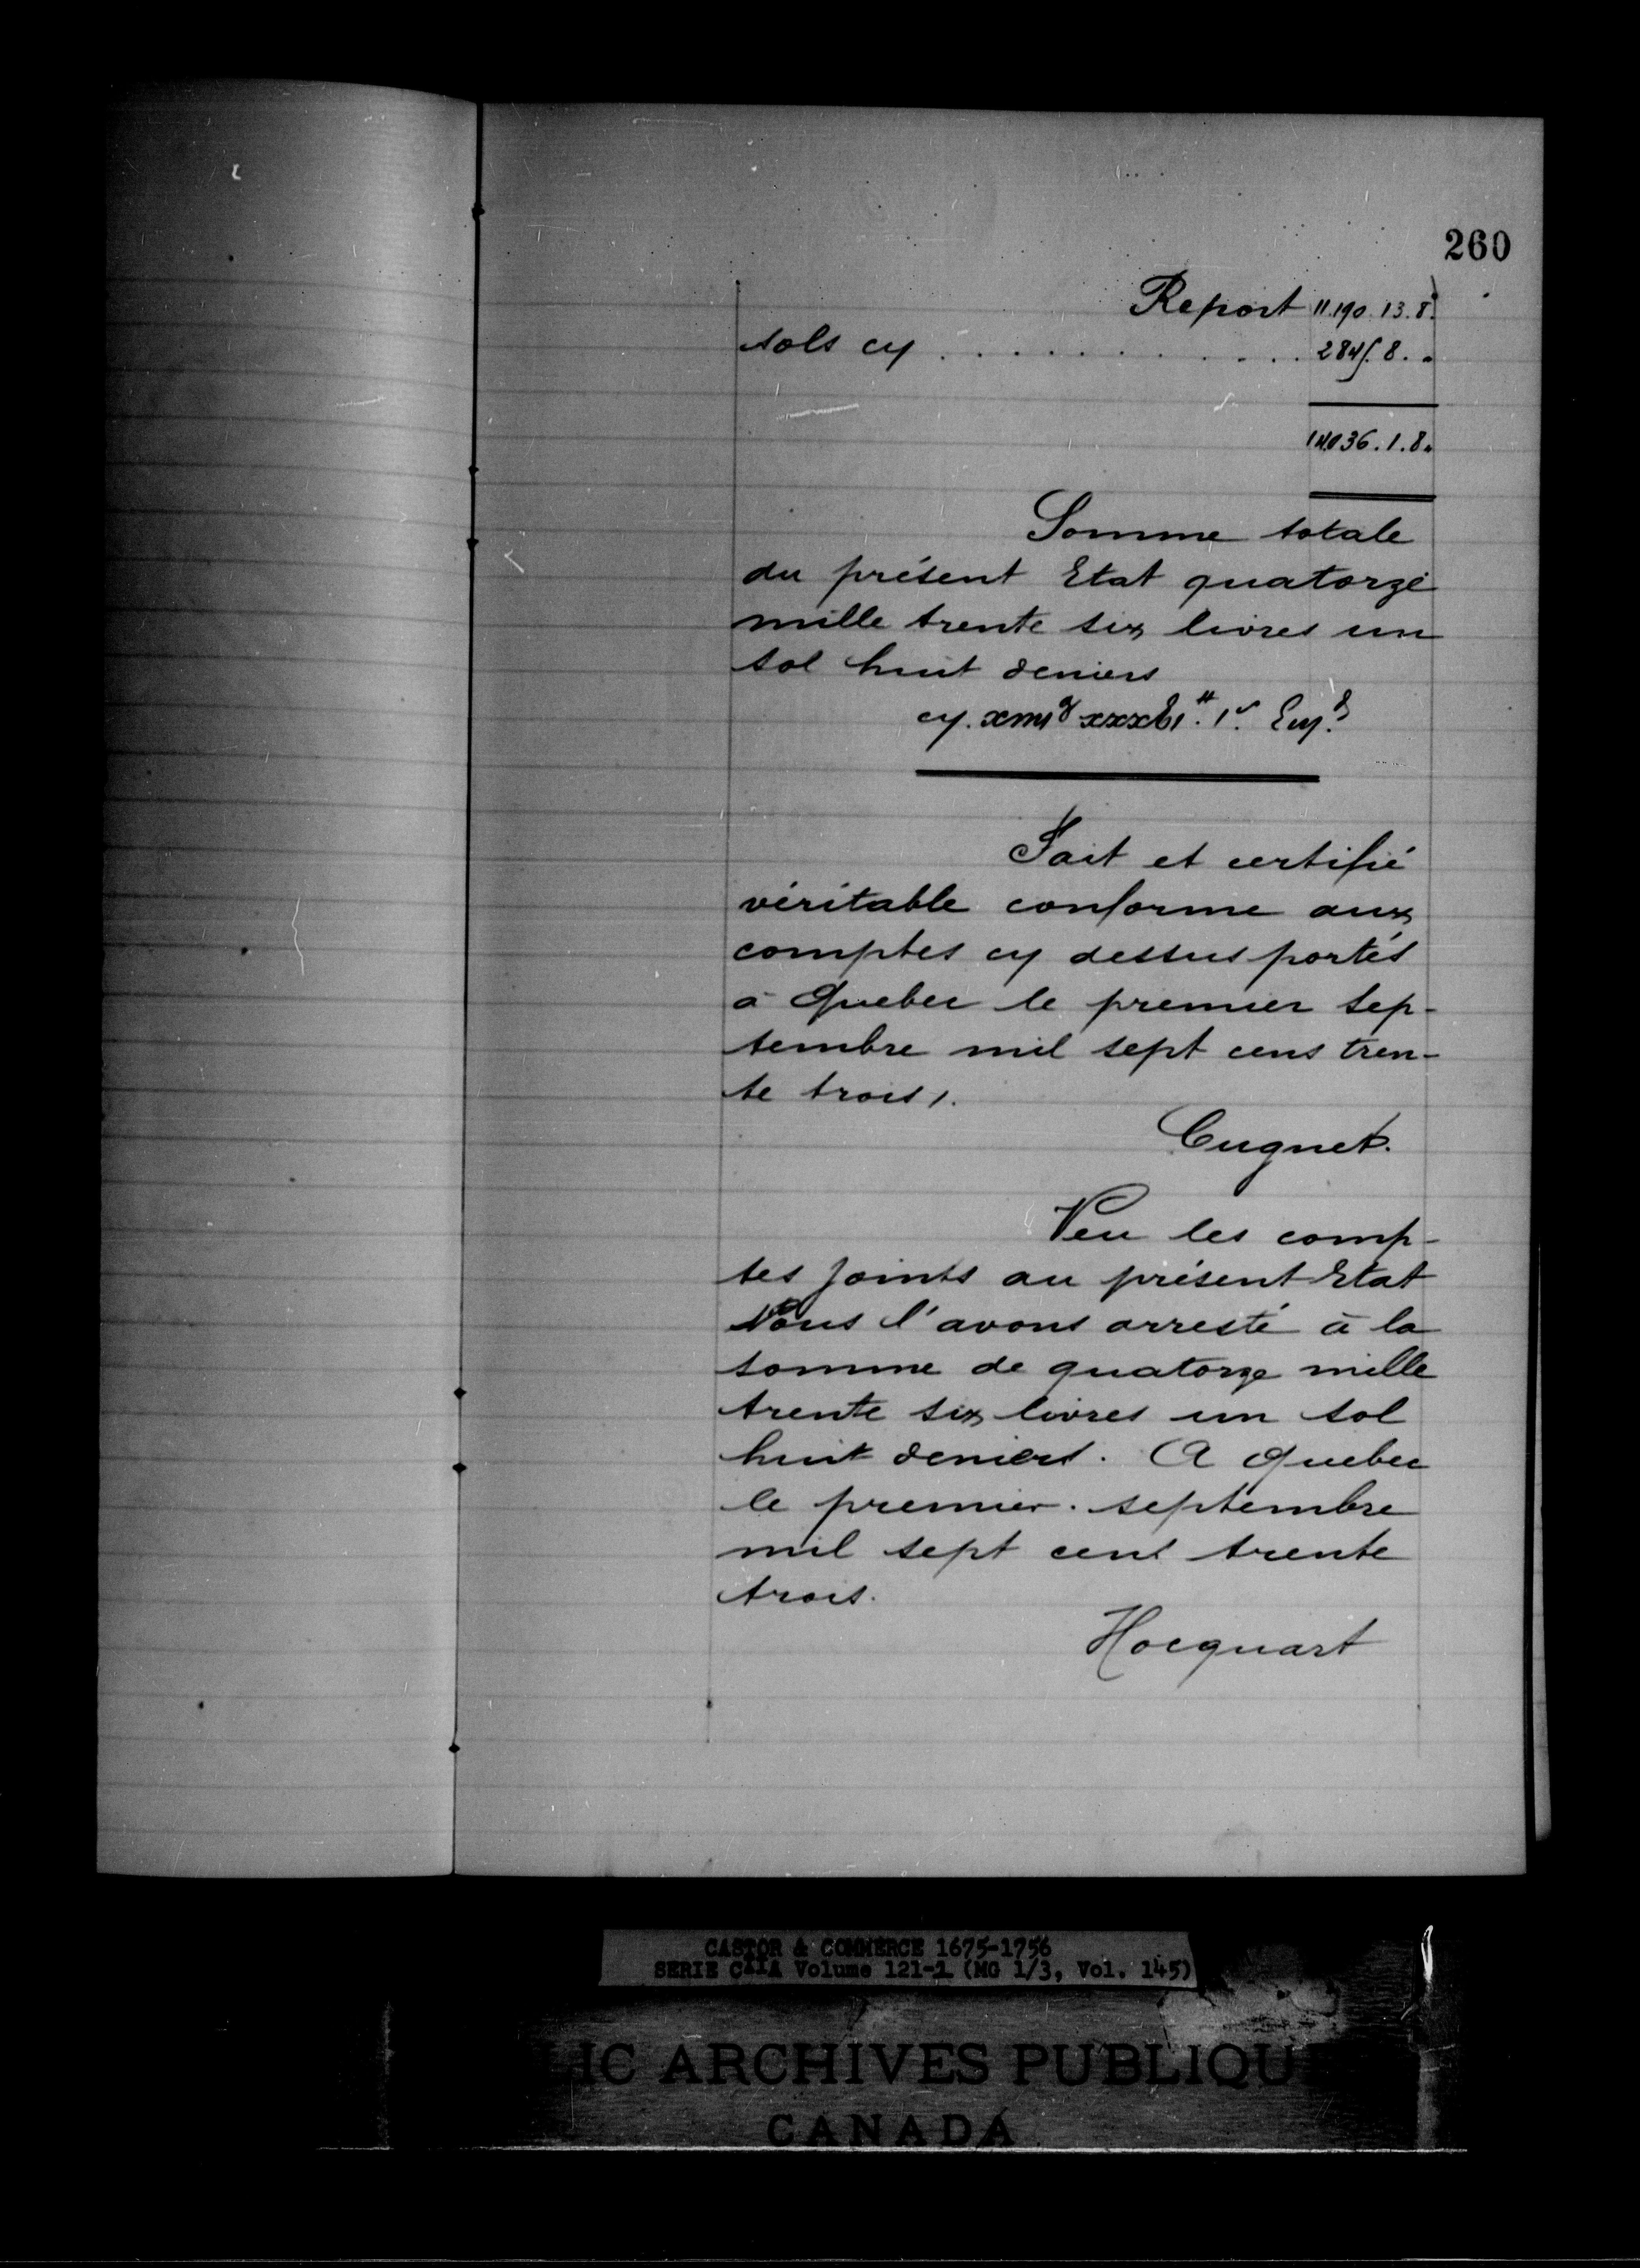 260
Report 11.190.13.8.
sols cy . . . . . . . . . . . 2845.8.„
14036.1.8.
Somme totale
du présent Etat quatorze
mille trente six livres un
sol huit deniers
cy. xxxvi
Fait et certifié
véritable conforme aux
comptes cy dessus portés
à Quebec le premier sep-
tembre mil sept cens tren-
te trois,.
Cugnet.
Veu les comp-
tes joints au présent Etat
Nous l'avons arresté à la
somme de quatorze mille
trente six livres un sol
huit deniers. A Quebec
le premier septembre
mil sept cent trente
trois.
Hocquart
CASTOR & COMMERCE 1675-1756
SERIE C11A Volume 121-1 (MG 1/3, Vol. 145)
IC ARCHIVES PUBLIQU
CANADA